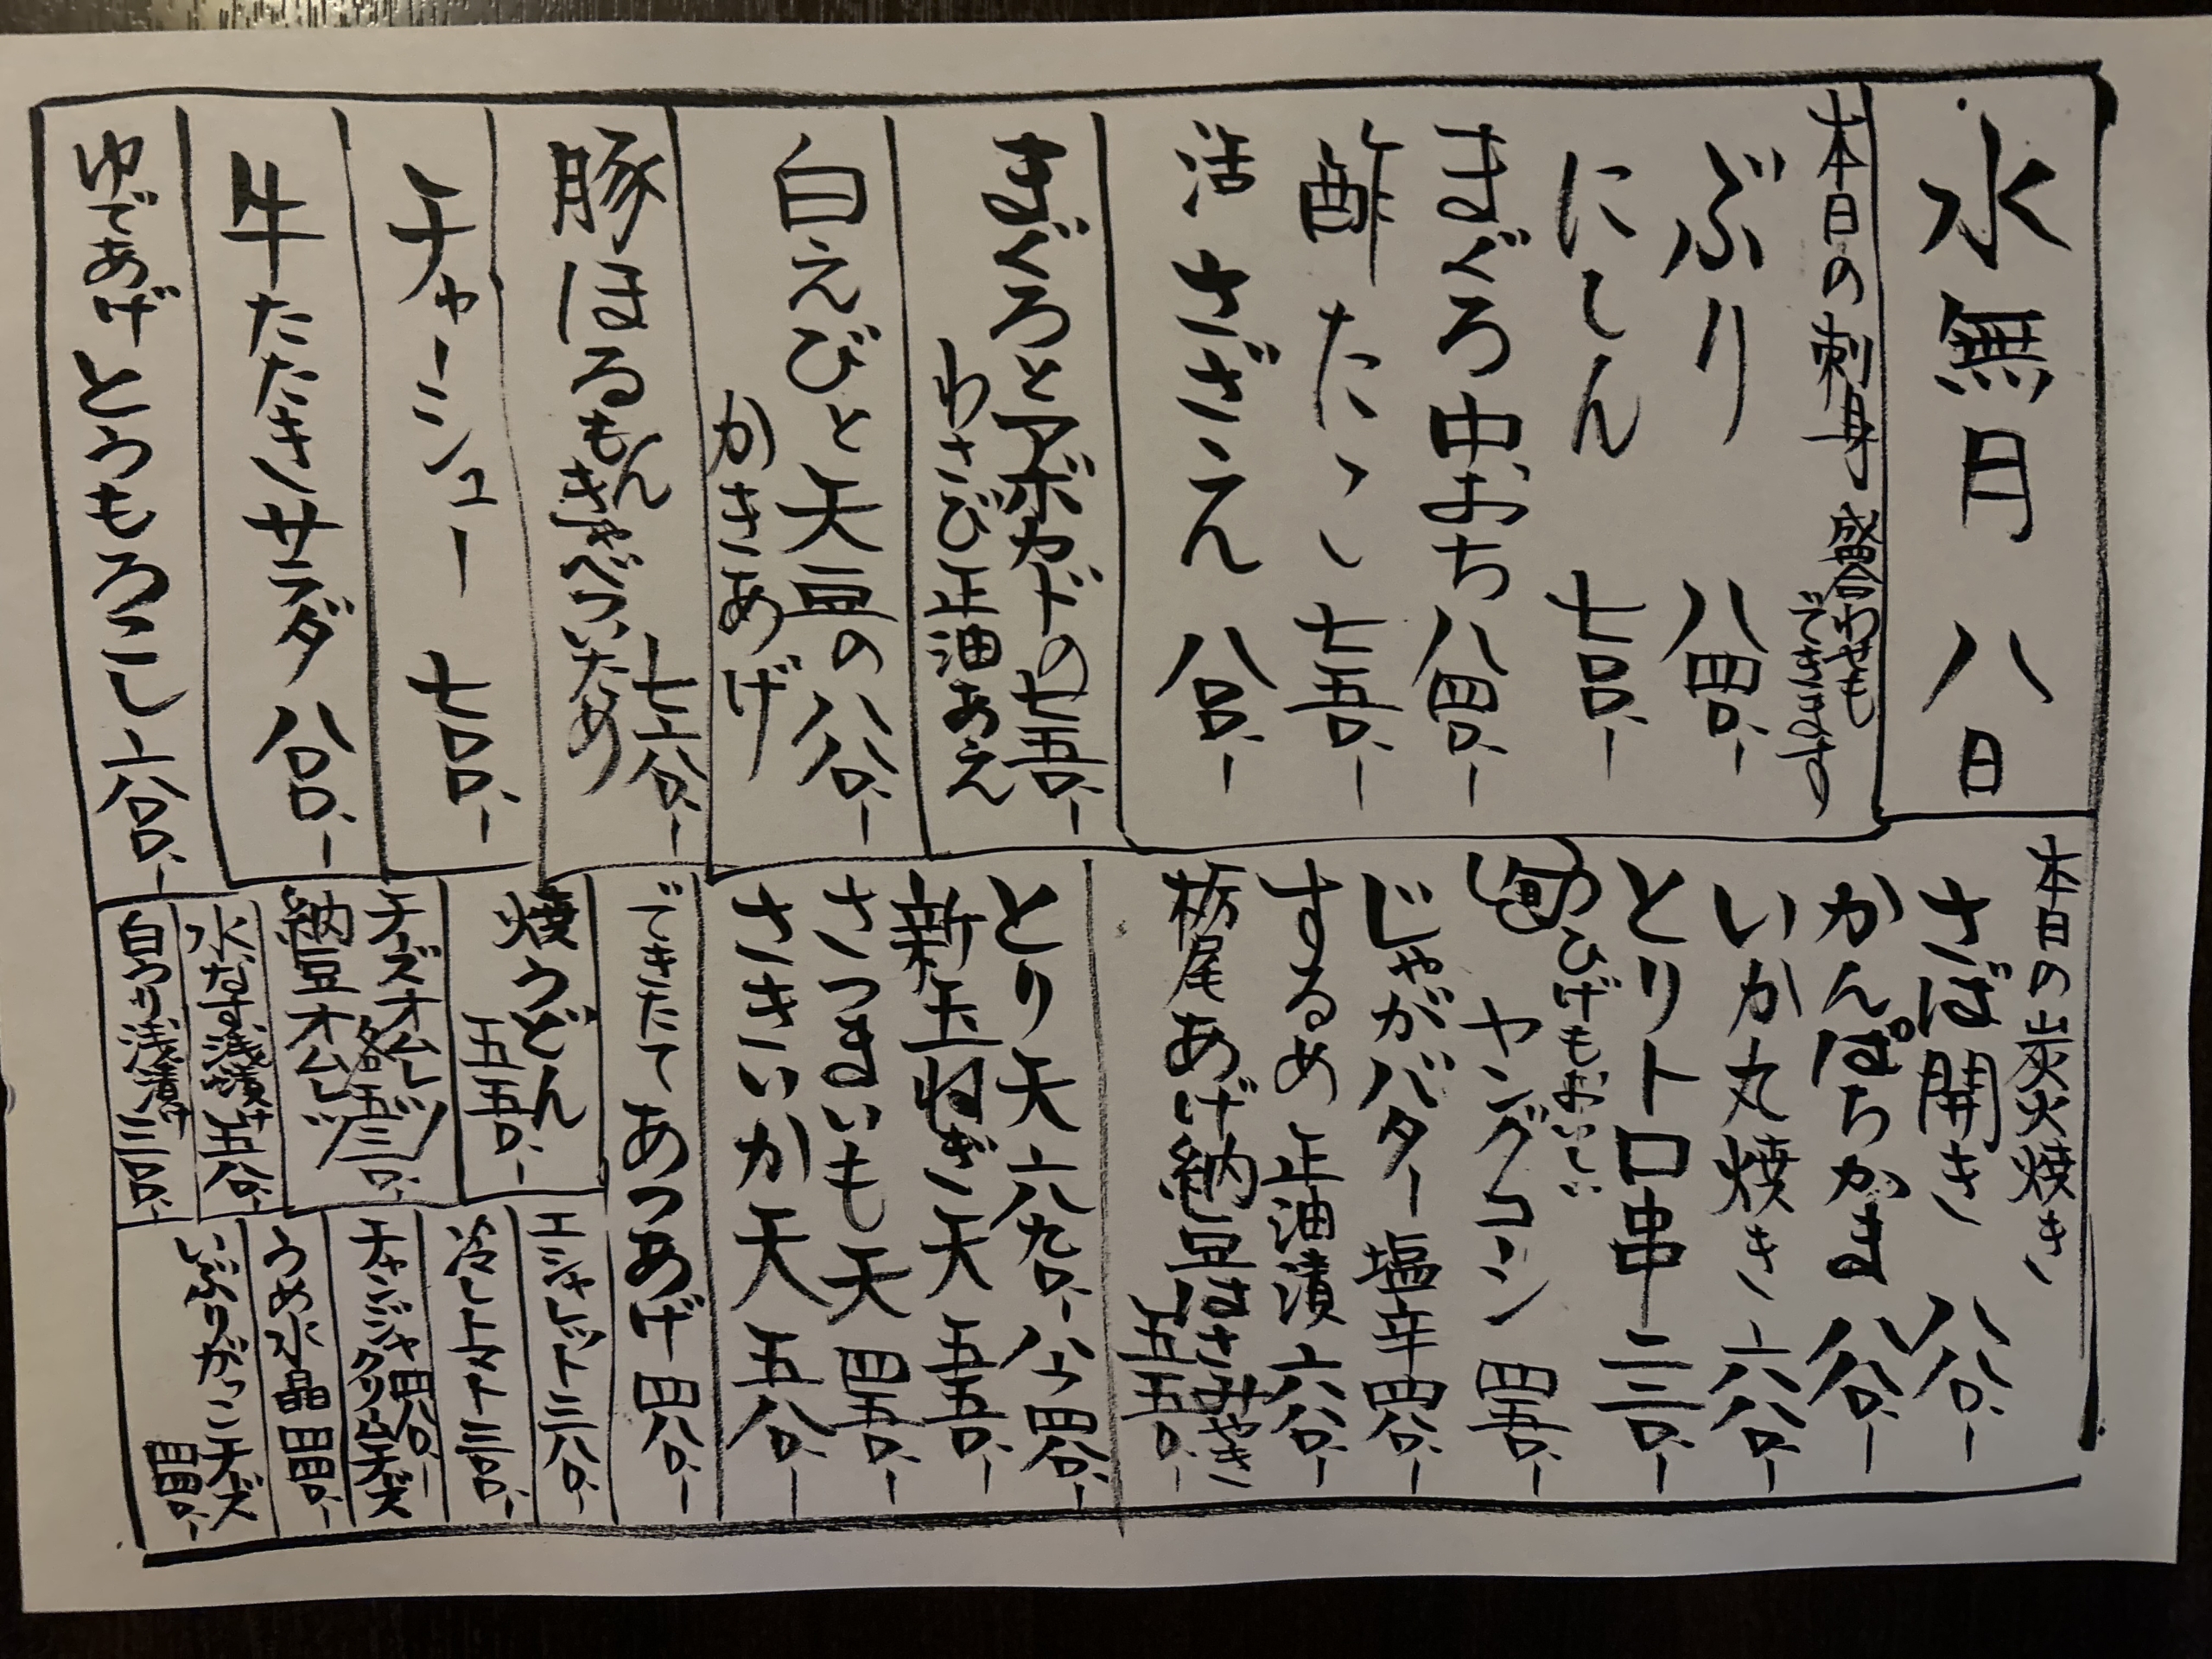 水無月 八日
本日の刺身 盛合わせも
できます
ぶり 八四〇、ー
にしん 七〇〇、ー
まぐろ中おち 八四〇、ー
酢たこ 七五〇、ー
活 さざえ 八〇〇、ー
まぐろとアボカドの 七五〇、ー
わさび正油あえ
白えびと天豆の 八八〇、ー
かきあげ
豚ほるもん
きゃべついため 七六〇、ー
チャーシュー 七〇〇、ー
牛たたきサラダ 八〇〇、ー
ゆであげとうもろこし 六〇〇、ー
本日の炭火焼き
さば開き 八八〇、ー
かんぱちかま 八八〇、ー
いか丸焼き 六八〇、ー
とりトロ串 二三〇、ー
旬 ひげもおいしい
ヤングコーン 四五〇、ー
じゃがバター塩辛 四八〇、ー
するめ正油漬 六八〇、ー
栃尾あげ納豆はさみやき
五五〇、ー
とり天 六九〇、ー 四八〇、ー
新玉ねぎ天 五五〇、ー
さつまいも天 四五〇、ー
さきいか天 五八〇、ー
できたて あつあげ 四八〇、ー
焼うどん
五五〇、ー
チーズオムレツ
納豆オムレツ
各五三〇、ー
水なす浅漬け 五八〇、ー
白うり浅漬け 三〇〇、ー
エシャレット 三八〇、ー
冷しトマト 三〇〇、ー
チャンジャ 四八〇、ー
クリームチーズ
うめ水晶 四四〇、ー
いぶりがっこチーズ
四四〇、ー